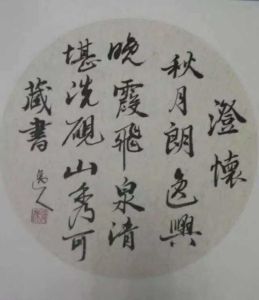 澄懷
秋月朗逸興
晚霞飛泉清
堪洗硯山秀可
藏書
逸人